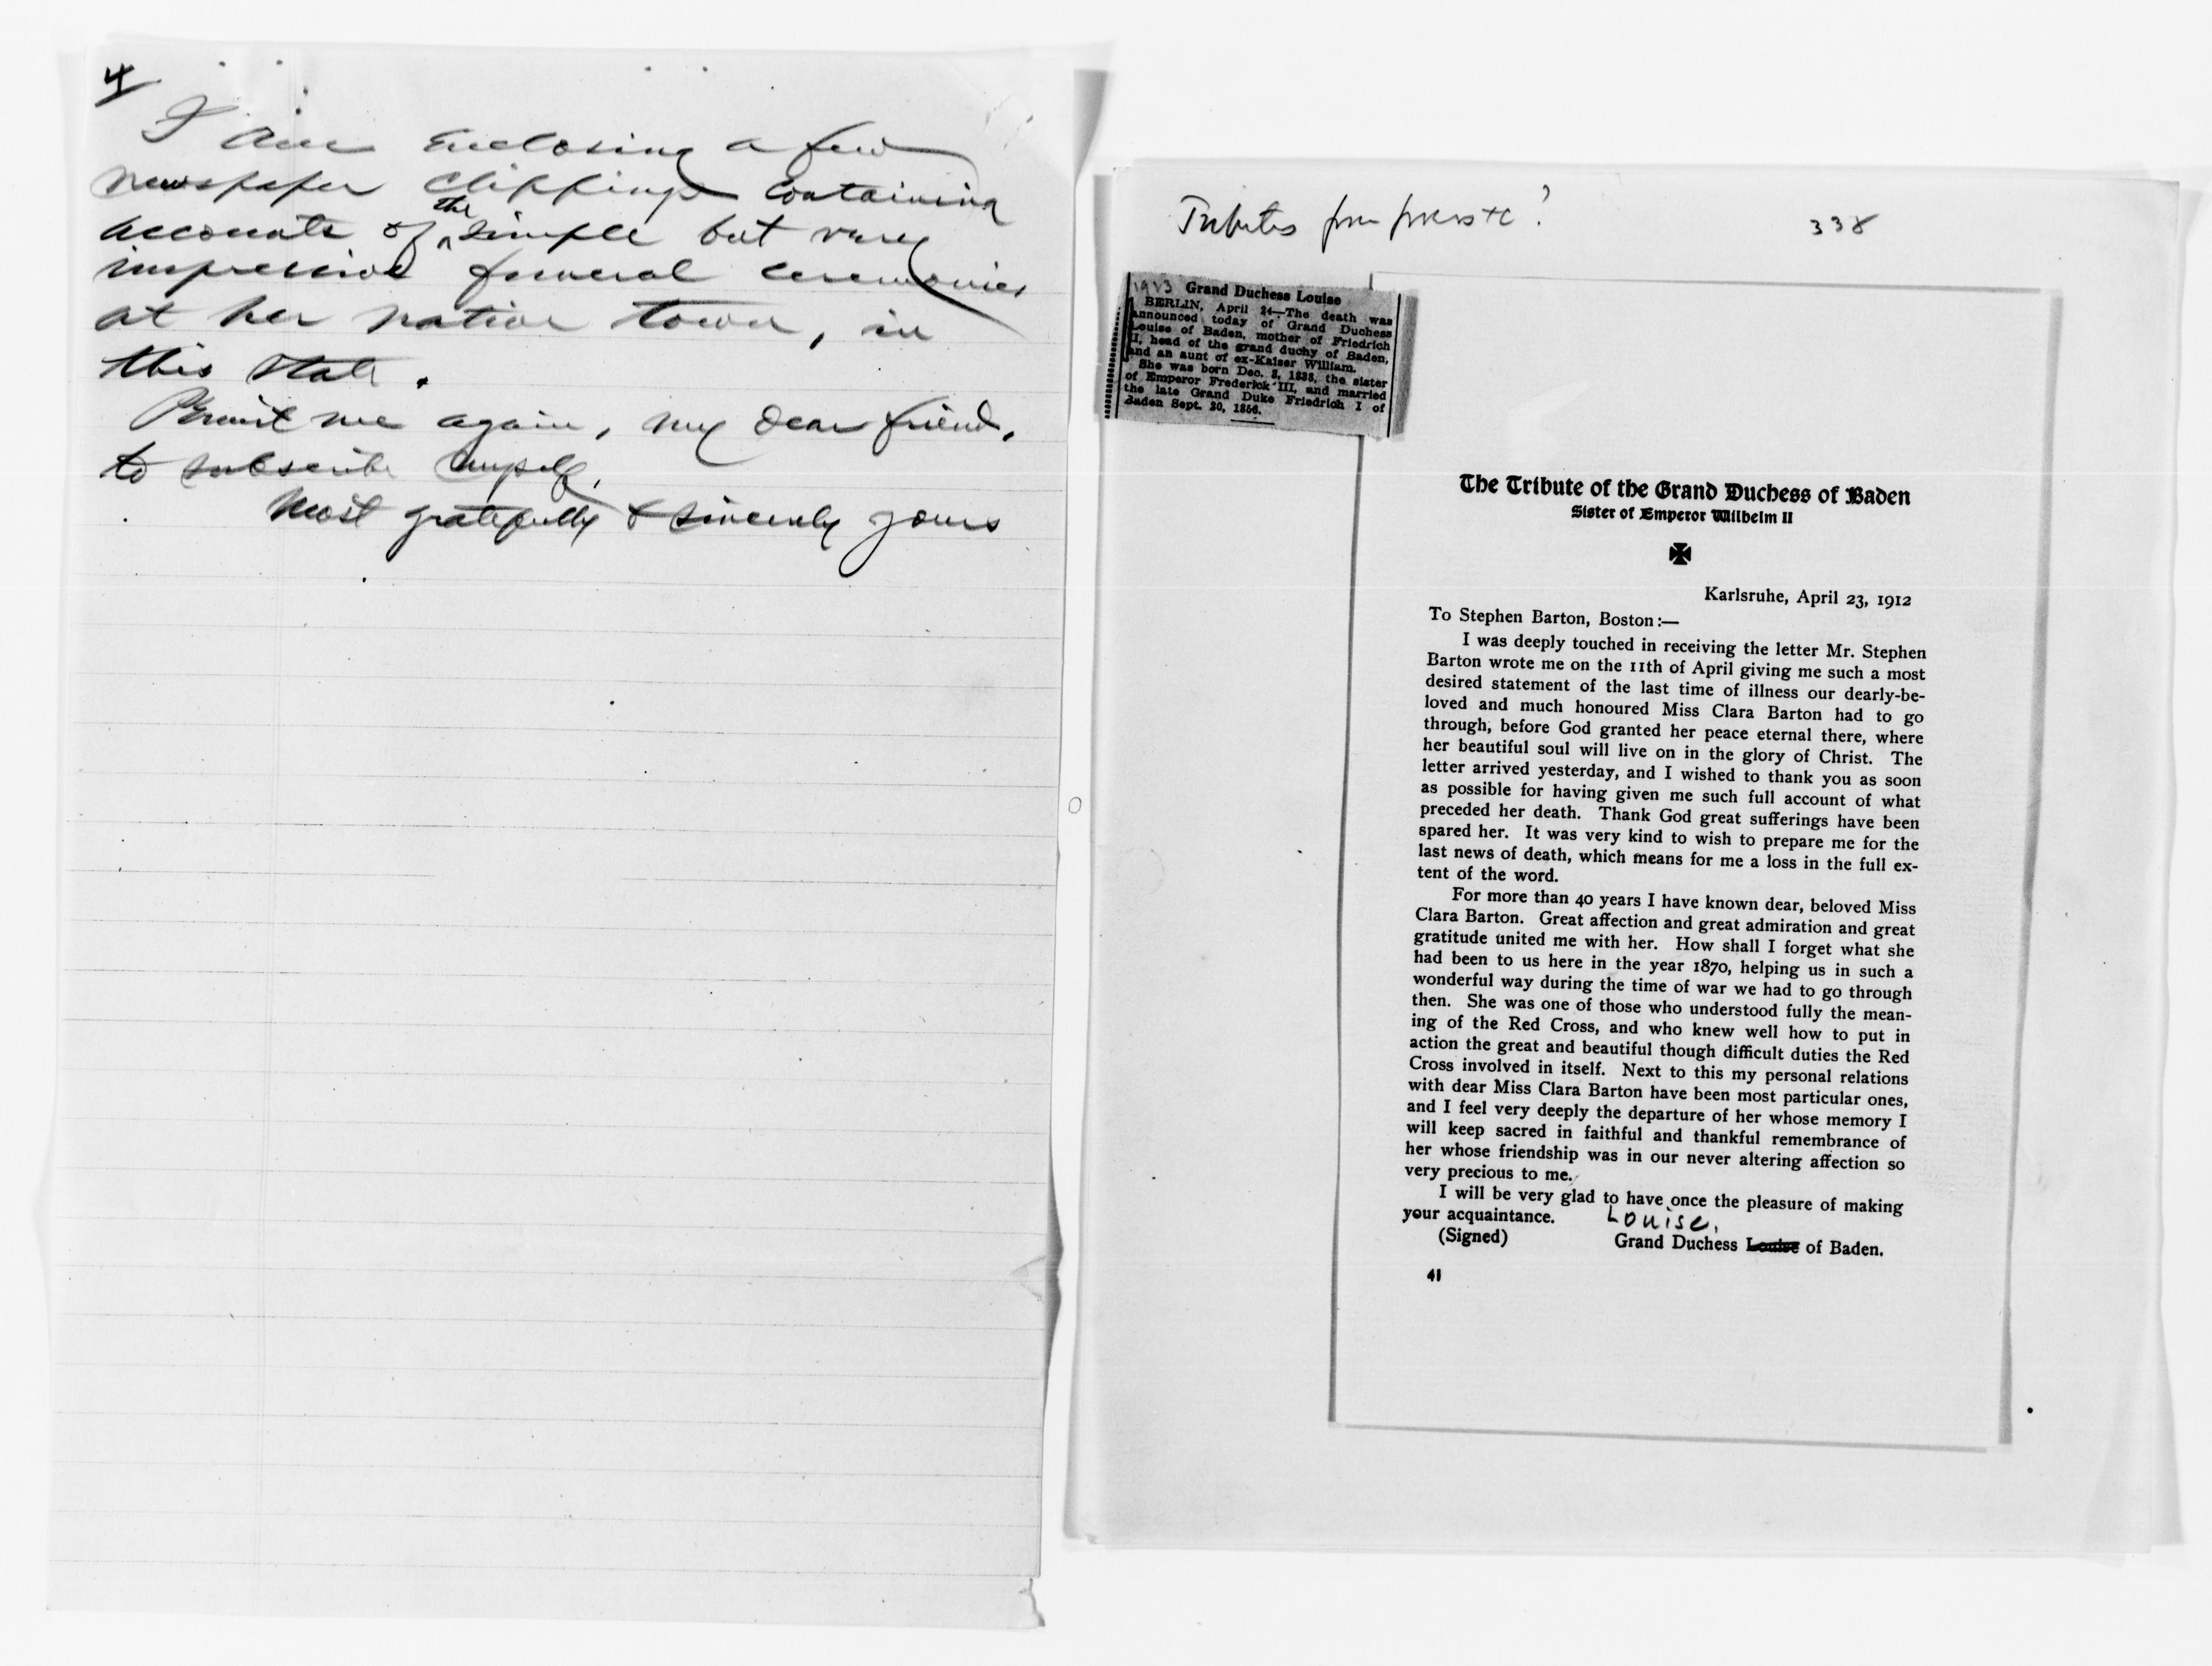 4
I am enclosing a few
newspaper clippings containing
accounts of the simple but very
impressive funeral ceremonies
at her native town, in
this state.
Permit me again, my dear friend,
to subscribe myself,
Most gratefully & sincerely yours
Tributes from
338
1923 Grand Duchess Louise
BERLIN, April 24—The death was
announced today of Grand Duchess
Louise of Baden, mother of Friedrich
II, head of the grand duchy of Baden,
and an aunt of ex-Kaiser William.
She was born Dec. 3, 1838, the sister
of Emperor Frederick III, and married
the late Grand Duke Friedrich I of
Baden Sept. 20, 1856.
The Tribute of the Grand Duchess of Baden
Sister of Emperor Wilhelm II
Karlsruhe, April 23, 1912
To Stephen Barton, Boston:—
I was deeply touched in receiving the letter Mr. Stephen
Barton wrote me on the 11th of April giving me such a most
desired statement of the last time of illness our dearly-be-
loved and much honoured Miss Clara Barton had to go
through, before God granted her peace eternal there, where
her beautiful soul will live on in the glory of Christ. The
letter arrived yesterday, and I wished to thank you as soon
as possible for having given me such full account of what
preceded her death. Thank God great sufferings have been
spared her. It was very kind to wish to prepare me for the
last news of death, which means for me a loss in the full ex-
tent of the word.
For more than 40 years I have known dear, beloved Miss
Clara Barton. Great affection and great admiration and great
gratitude united me with her. How shall I forget what she
had been to us here in the year 1870, helping us in such a
wonderful way during the time of war we had to go through
then. She was one of those who understood fully the mean-
ing of the Red Cross, and who knew well how to put in
action the great and beautiful though difficult duties the Red
Cross involved in itself. Next to this my personal relations
with dear Miss Clara Barton have been most particular ones,
and I feel very deeply the departure of her whose memory I
will keep sacred in faithful and thankful remembrance of
her whose friendship was in our never altering affection so
very precious to me.
I will be very glad to have once the pleasure of making
your acquaintance. Louise.
(Signed) Grand Duchess Louise of Baden.
41